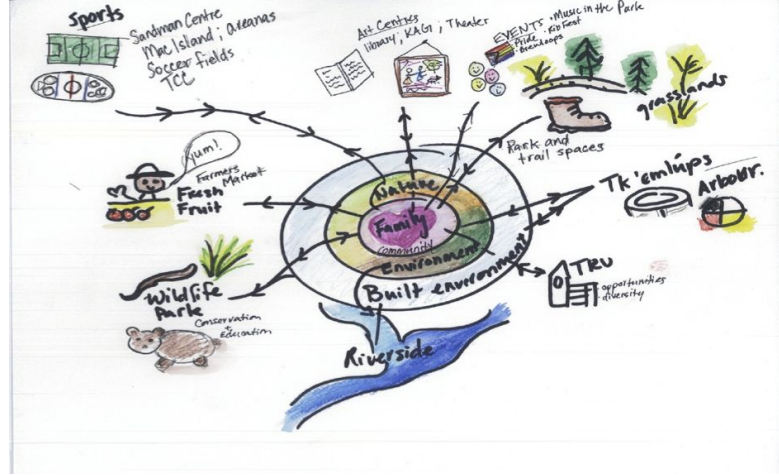 Sports
Sandman Centre
Mac Island ; areanas
Soccer fields
TCC
Art Centres
library ; KAG ; Theater
EVENTS • Music in the Park
• Pride • Ribfest
• Brewloops
grasslands
Park and
trail spaces
Yum!
Farmers
Market
Fresh
Fruit
Nature
Family
community
Environment
Built environment
Tk'emlúps
Arbour.
Wildlife
Park
Conservation
+
Education
TRU
• opportunities
• diversity
Riverside